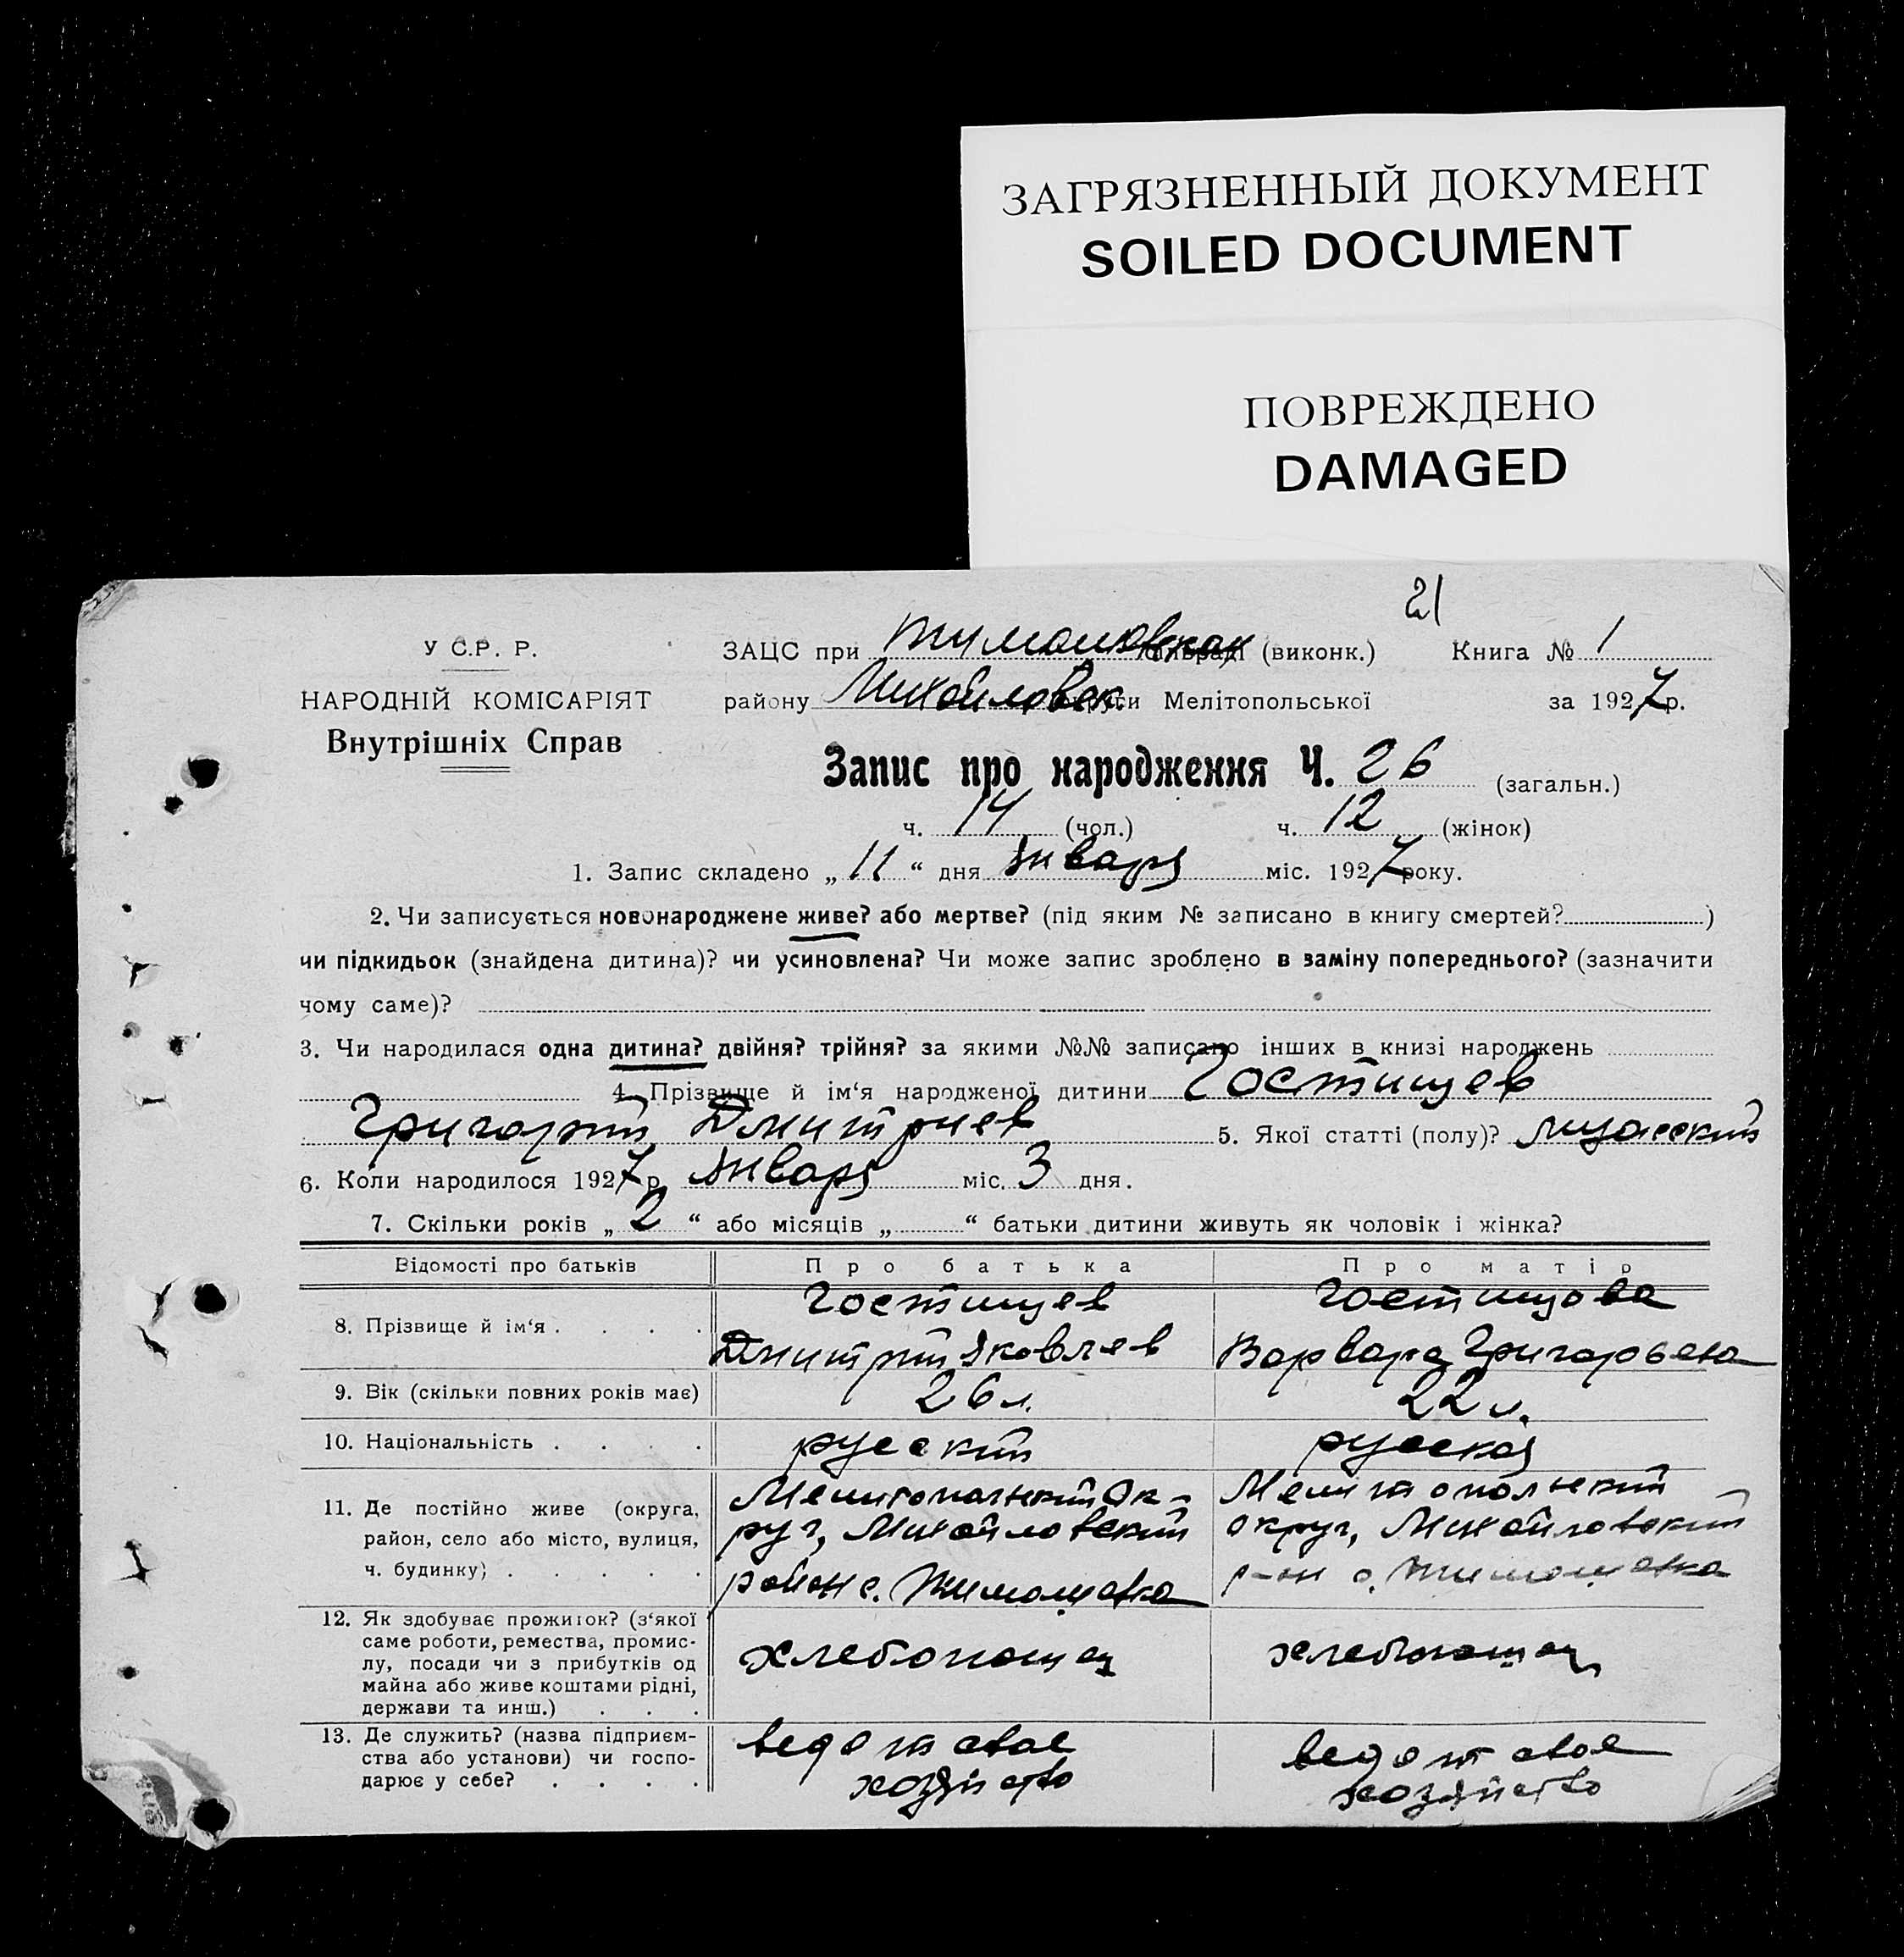 ЗАГРЯЗНЕННЫЙ ДОКУМЕНТ
SOILED DOCUMENT
ПОВРЕЖДЕНО
DAMAGED
21
У С.Р. Р.
НАРОДНІЙ КОМІСАРІЯТ
Внутрішніх Справ
ЗАЦС при (виконк.) Книга № 1
району Михайловск. округи Мелітопольської за 1927 р.
Запис про народження Ч. 26 (загальн.)
ч. 14 (чол.) ч. 12 (жінок)
1. Запис складено „ 11 “ дня января міс. 1927 року.
2. Чи записується новонароджене живе? або мертве? (під яким № записано в книгу смертей? )
чи підкидьок (знайдена дитина)? чи усиновлена? Чи може запис зроблено в заміну попереднього? (зазначити
чому саме)?
3. Чи народилася одна дитина? двійня? трійня? за якими №№ записано інших в книзі народжень
4. Прізвище й ім‘я народженої дитини Гостищев
Григорий Дмитриев 5. Якої статті (полу)?
6. Коли народилося 1927 р. января міс. 3 дня.
7. Скільки років „ 2 “ або місяців „ “ батьки дитини живуть як чоловік і жінка?
Відомості про батьків Про батька Про матір
8. Прізвище й ім‘я . . . .
Гостищев
Дмитрий Яковлев
Гостищова
Варвара Григорьевна
9. Вік (скільки повних років має) 26 л. 22 л.
10. Національність . . . . русский русская
11. Де постійно живе (округа,
район, село або місто, вулиця,
ч. будинку) . . . . .
Мелитопольский ок-
руг, Михайловский
район с. Тимошевка
Мелитопольский
округ, Михайловский
р-он с. Тимошевка
12. Як здобуває прожиток? (з‘якої
саме роботи, ремества, промис-
лу, посади чи з прибутків од
майна або живе коштами рідні,
держави та инш.) . . .
хлебопашец
хлебопашец
13. Де служить? (назва підприєм-
ства або установи) чи госпо-
дарює у себе? . . . .
ведет свое
хозяйство
ведет свое
хозяйство